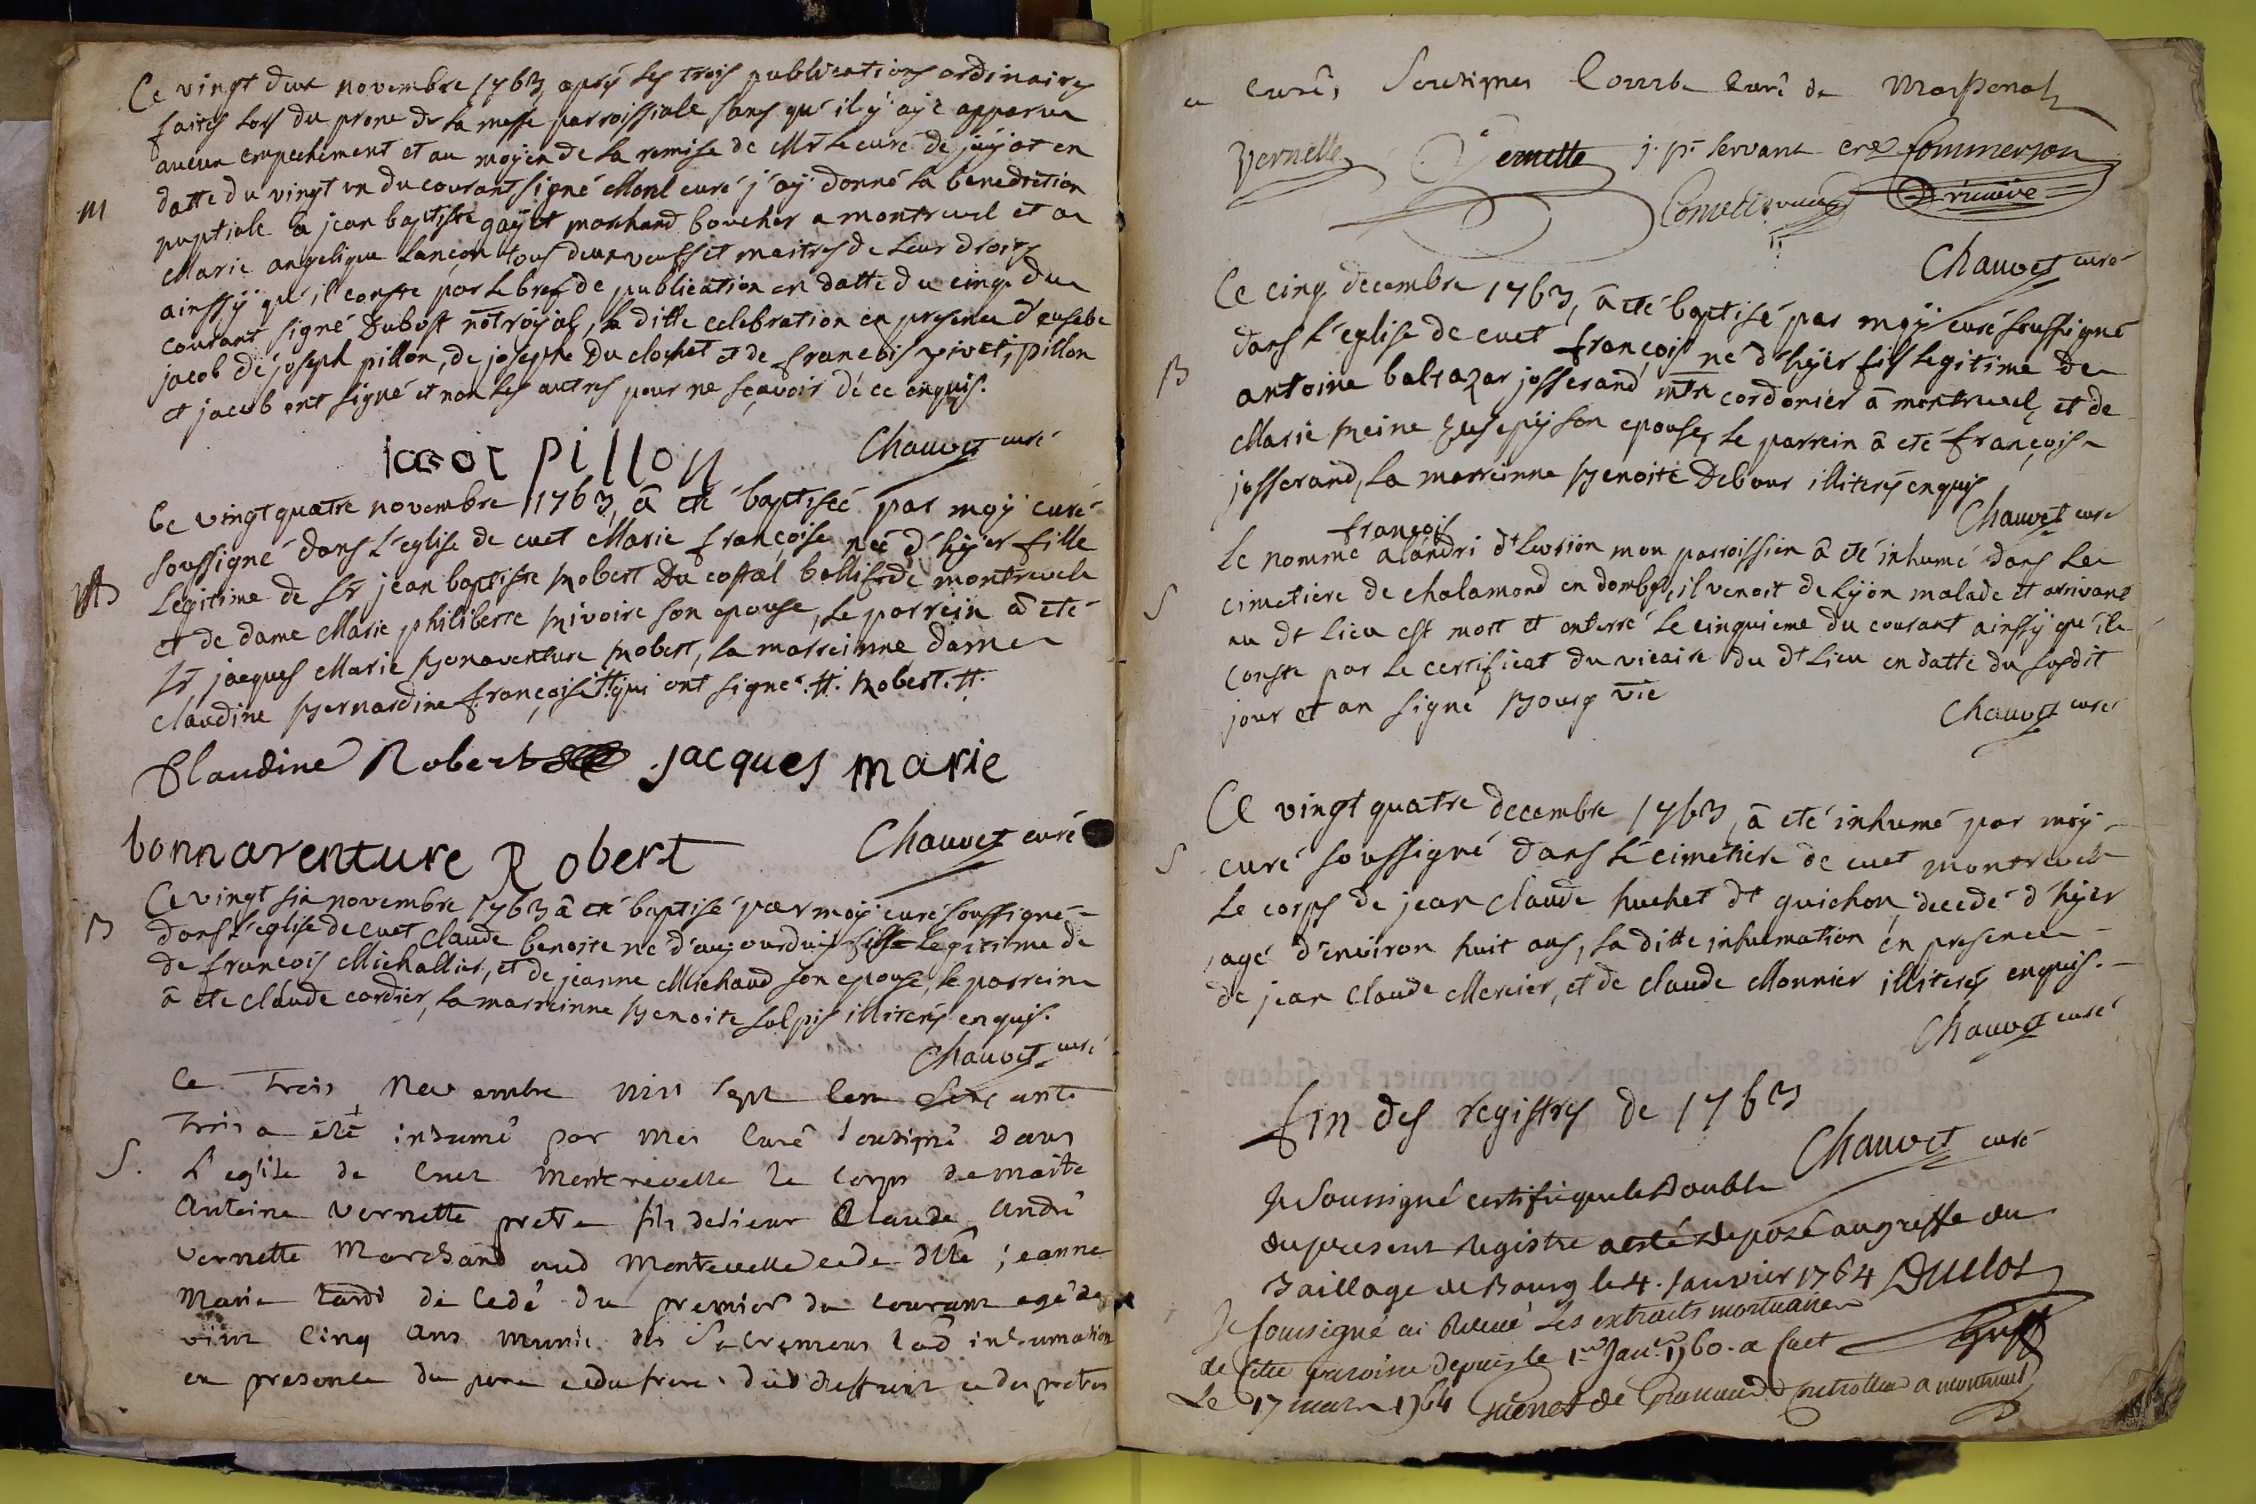 Ce vingt deux novembre 1763, aprés les trois publications ordinaires
faites lors du prone de la messe parroissiale sans qu'il y aye apparu
aucun empechement et au moyen de la remise de Mr le curé de jayat en
datte du vingt un du courant signé Morel curé j'aÿ donné la benediction
M
nuptiale à jean baptiste gayet marchand boucher a montrevel et a
Marie angelique Lançon tous deux veufs et maitres de leur droits
ainssÿ qu'il conste par le bref de publication en datte du cinq du
courant signé Dubost not royal, la ditte celebration en presence d'eusebe
jacob de joseph pillon, de josephe Du clochet et de francois pivet, pillon
et jacob ont signé et non les autres pour ne sçavoir de ce enquis.
jacob pillon
Chauvet curé
Ce vingt quatre novembre 1763, â eté baptiseé par moÿ curé
soussigné dans l'eglise de cuet Marie françoise neé d'hÿer fille
legitime de Sr jean baptiste Robert Du costal baillif de montrevel
et de dame Marie philiberte Rivoire son epouse, le parrein â eté
Sr jacques Marie Bonaventure Robert, la marreinne dame
claudine Bernardine françoise # qui ont signé. #. Robert. #.
Claudine Robert jacques marie
bonnaventure Robert
Chauvet curé
Ce vingt six novembre 1763 â eté baptisé par moÿ curé soussigné
B
dans l'eglise de cuet claude benoite né d'aujourduis fille legitime de
de francois Michallier, et de jeanne Michaud son epouse, le parrein
â eté claude cordier, la marreinne Benoite sulpis illiterés enquis.
Chauvet curé
Ce trois novembre mil sept cen soixante
trois a été inhumé par moi curé sousigné dans
S.
l'eglise de cuet montrevelle le corps de maitre
Antoine vernette pretre fils de sieur Claude André
vernette Marchand aud montrevelle et de dlle jeanne
Marie tardi décedé du premier du courant agé de
vint cinq ans munie des sacremens lad inhumation
en presence du pere et du frere dud deffunt et des pretres
et curés sousignés Courbe curé de Marsonat
Vernette Vernette j. p. servant Commerson
Chauvet curé
Ce cinq decembre 1763, â eté baptisé par moÿ curé soussigné
dans l'eglise de cuet françois né d'hÿer fils legitime de
B
antoine baltazar josserand mtre cordonier â montrevel, et de
Marie Reine son epouse, le parrein â eté françois
josserand, la marreinne Benoite Debour illiterés enquis
Chauvet curé
françois
Le nommé alandri dt Lurion mon parroissien â eté inhumé dans le
S
cimetiere de chalamond en dombes, il venoit de Lÿon malade et arrivant
au dt lieu est mort et enterré le cinquieme du courant ainssÿ qu'il
conste par le certificat du vicaire du dt lieu en datte du susdit
jour et an signé Bourg vic
Chauvet curé
Ce vingt quatre decembre 1763, â eté inhumé par moÿ
S
curé soussigné dans le cimetiere de cuet montrevel
le corps de jean claude huchet dt guichon, decedé d'hÿer
agé d'environ huit ans, la ditte inhumation en presence
de jean claude Mercier, et de claude Monnier illiterés enquis.
Chauvet curé
fin des registres de 1763
Chauvet curé
Je Soussigné certifie que le double
du present Registre a esté deposé au greffe du
Baillage de Bourg le 4. Janvier 1764 Duclos
Greff
Je soussigné ai Relevé les extraits mortuaires
de cette paroisse depuis le 1er Janr 1760. a cuet
Le 17 mars 1764 controlleur a montrevel